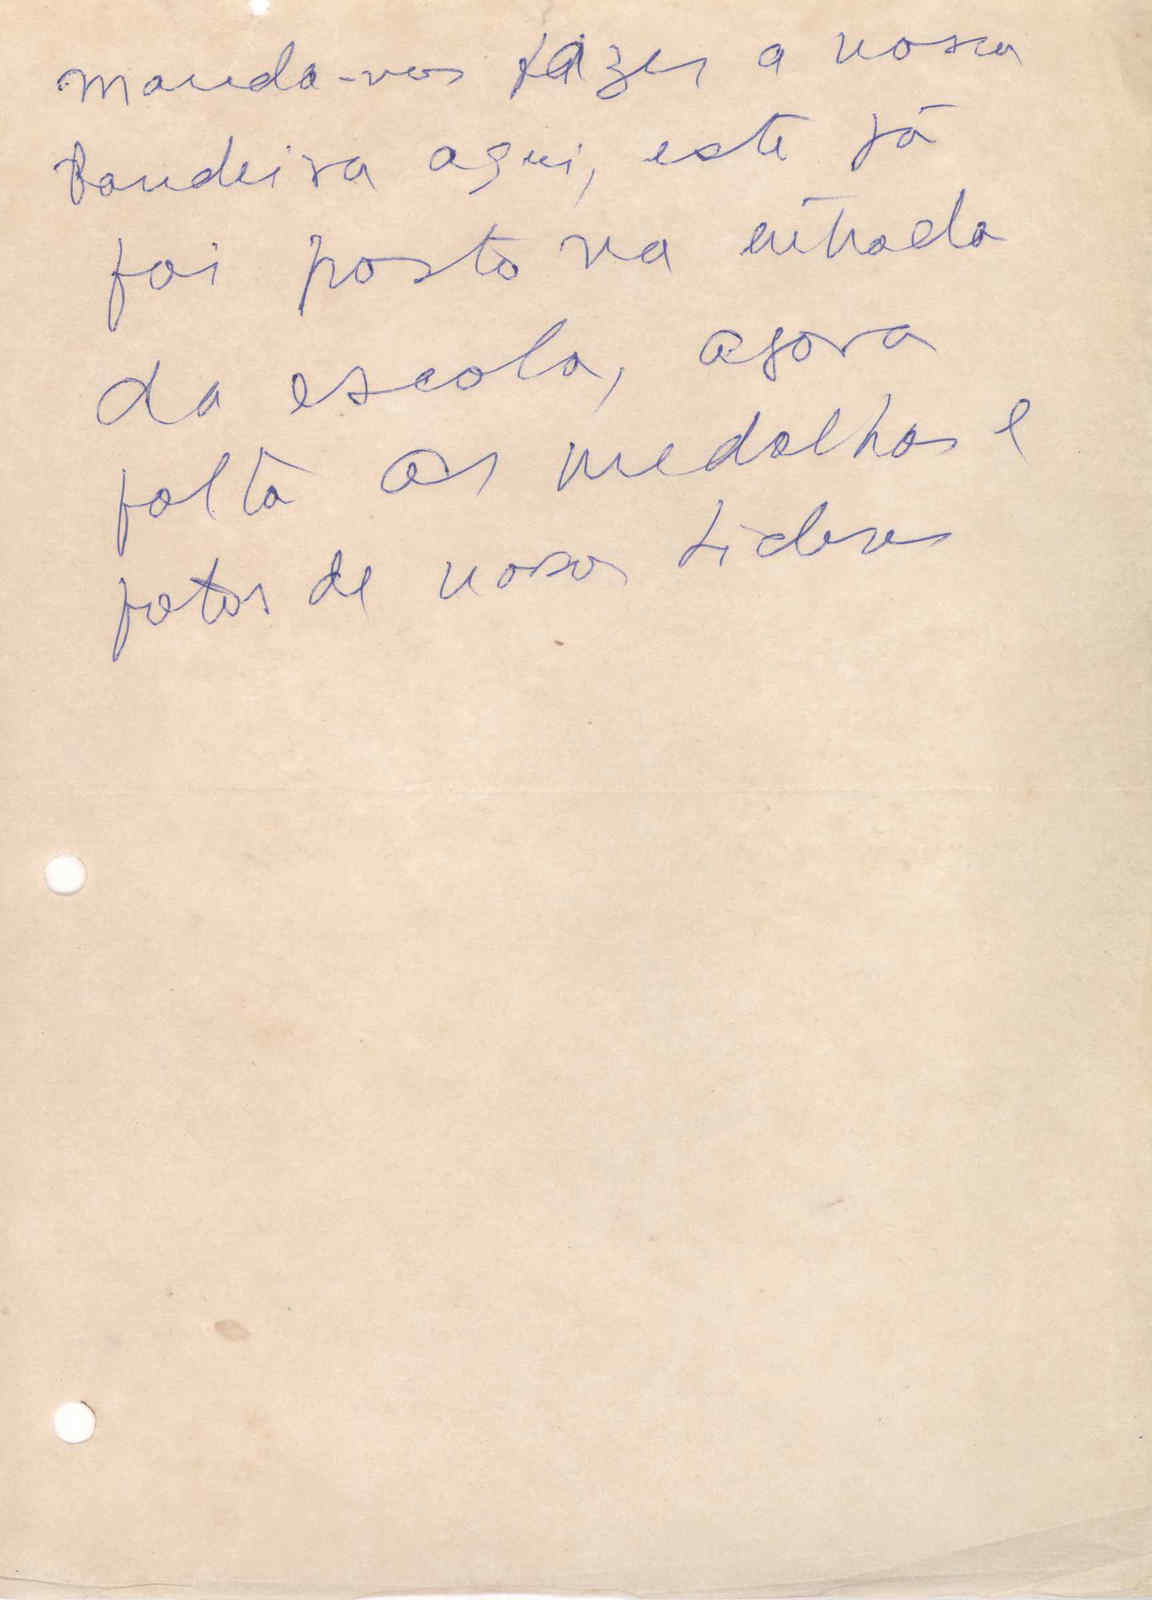 manda-nos fazer a nossa
bandeira aqui, este já
foi posto na entrada
da escola, agora
falta as medalhas e
fotos de nosos Lideres